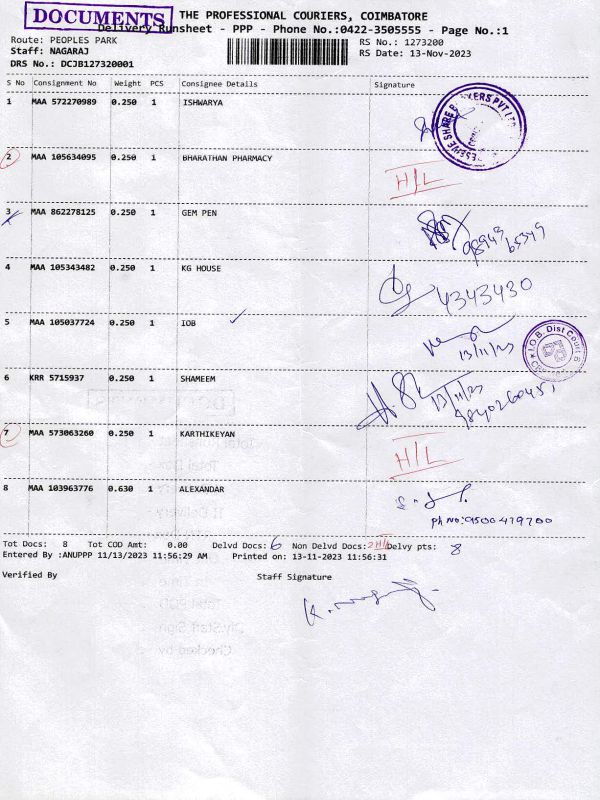 DOCUMENTS
THE PROFESSIONAL COURIERS, COIMBATORE
Delivery Runsheet - PPP - Phone No.:0422-3505555 - Page No.:1
Route: PEOPLES PARK
RS No.: 1273200
Staff: NAGARAJ
RS Date: 13-Nov-2023
DRS No.: DCJB127320001
S No Consignment No Weight PCS Consignee Details Signature
1 MAA 572270989 0.250 1 ISHWARYA
2 MAA 105634095 0.250 1 BHARATHAN PHARMACY H/L
3 MAA 862278125 0.250 1 GEM PEN
4 MAA 105343482 0.250 1 KG HOUSE 4343430
5 MAA 105037724 0.250 1 IOB 13/11/23
I.O.B. Dist Court
6 KRR 5715937 0.250 1 SHAMEEM 13/11/23
7 MAA 573063260 0.250 1 KARTHIKEYAN H/L
8 MAA 103963776 0.630 1 ALEXANDAR
Ph No: 9500479700
Tot Docs: 8 Tot COD Amt: 0.00 Delvd Docs: 6 Non Delvd Docs: 2 H/L Delvy pts: 8
Entered By :ANUPPP 11/13/2023 11:56:29 AM Printed on: 13-11-2023 11:56:31
Verified By Staff Signature